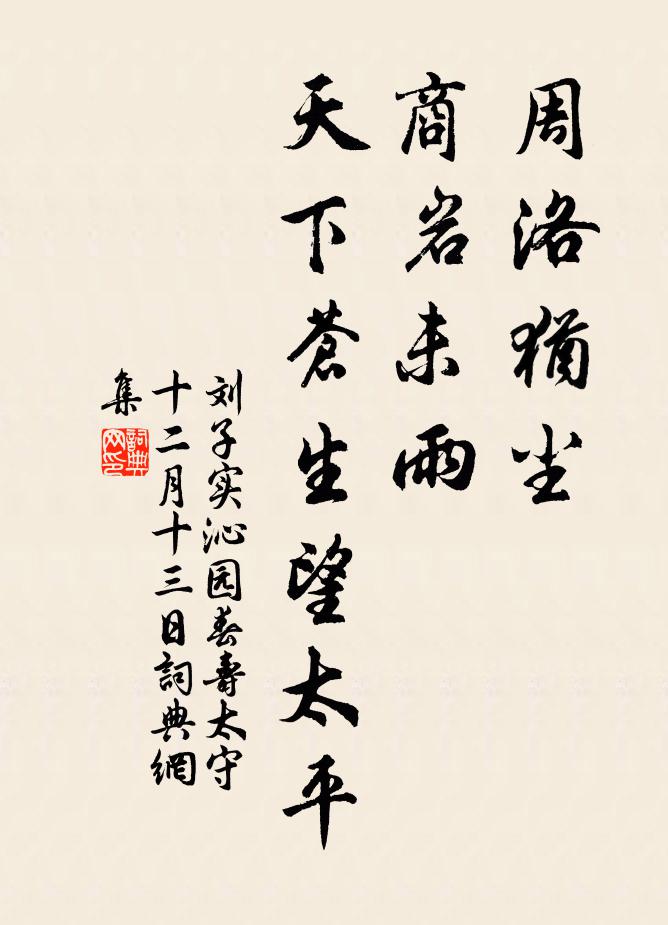 周洛猶尘
商岩未雨
天下蒼生望太平
刘子实沁园春壽太守
十二月十三日詞典網
集
詞典网印